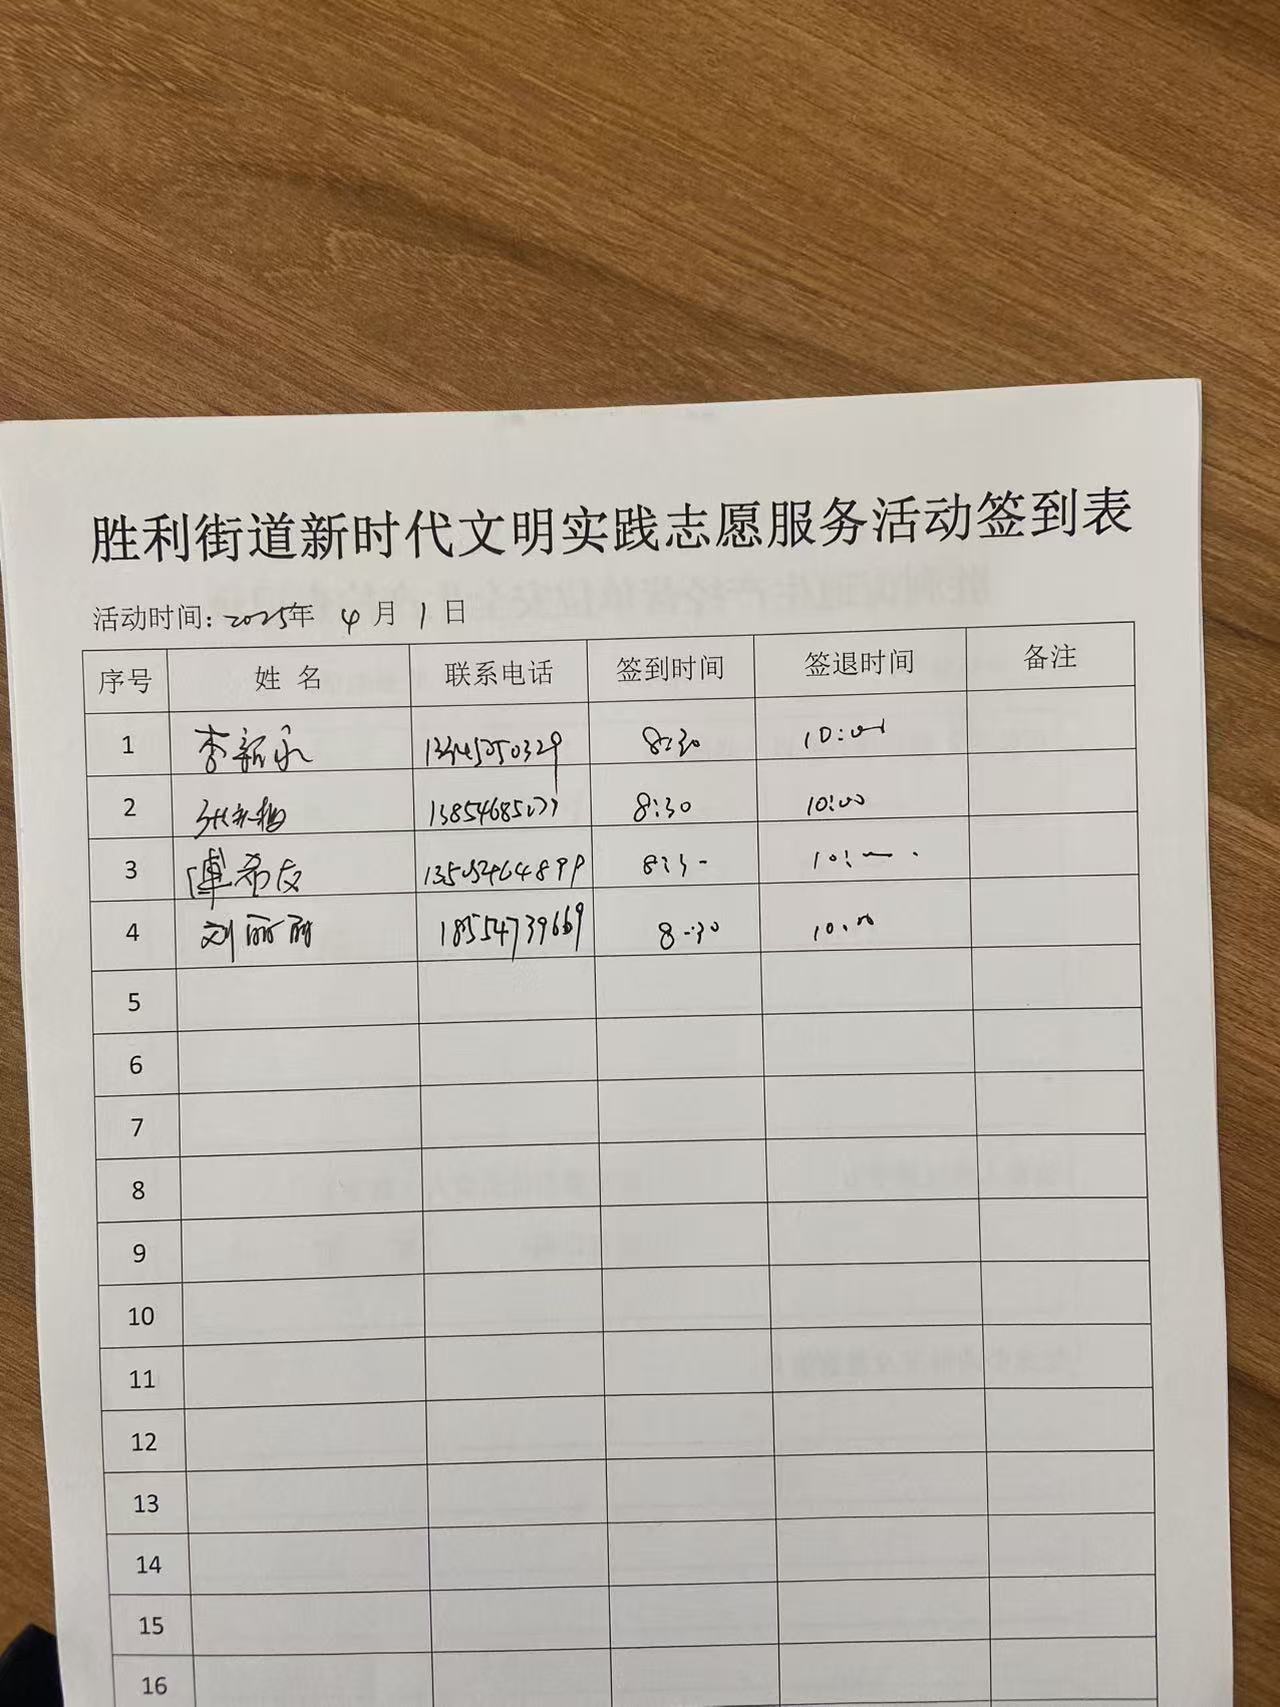 胜利街道新时代文明实践志愿服务活动签到表
活动时间: 2025年 4 月 1 日
序号 姓 名 联系电话 签到时间 签退时间 备注
1 李新永 8:30 10:00
2 8:30 10:00
3 8:30 10:
4 刘丽丽 18554739669 8:30 10:00
5
6
7
8
9
10
11
12
13
14
15
16